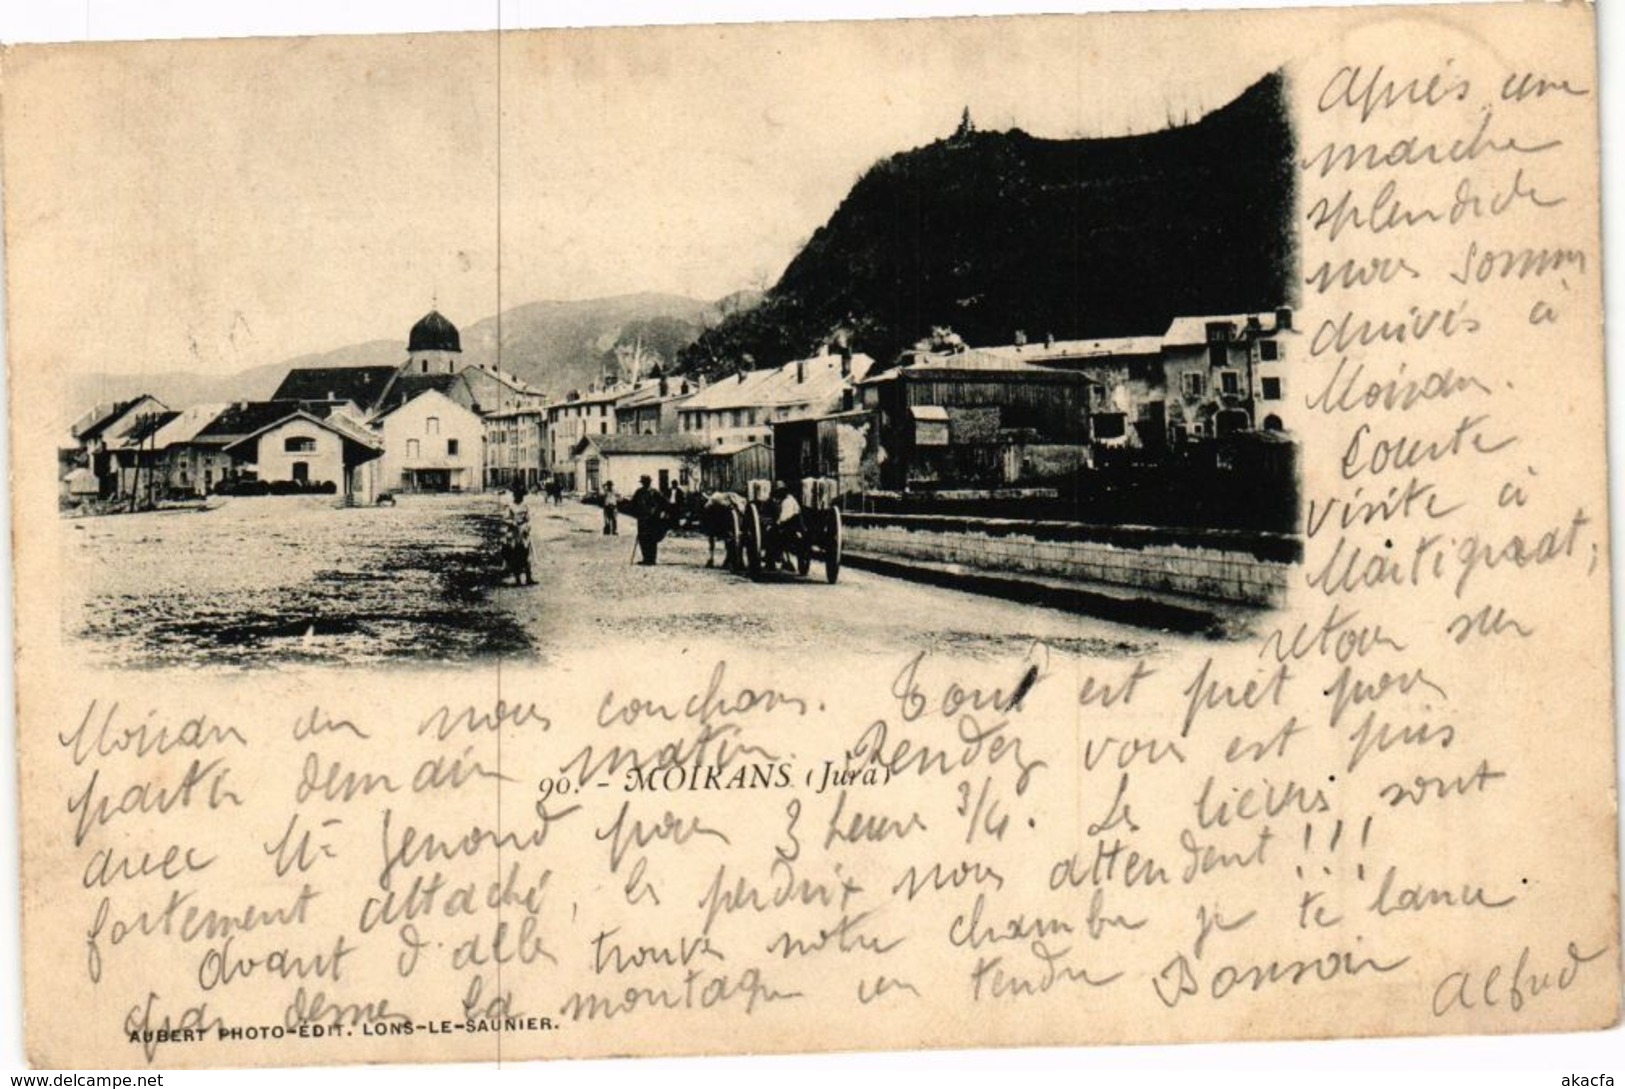 Après une
marche
splendide
nous somm
arrivés à
Moiran.
Courte
visite à
Martigna
retour sur
Moiran ou nous couchons. Tout est prêt pour
partir demain matin. Rendez vous est pris
90. - MOIRANS (Jura)
avec Mr Genond pour 3 heure 3/4. Le lièvres sont
fortement attaché, les perdrix nous attendent!!!
Avant d'aller trouver notre chambre je te lance
par dessus la montagne un tendre Bonsoir
Alfred
AUBERT PHOTO-ÉDIT. LONS-LE-SAUNIER.
www.delcampe.net
akacfa